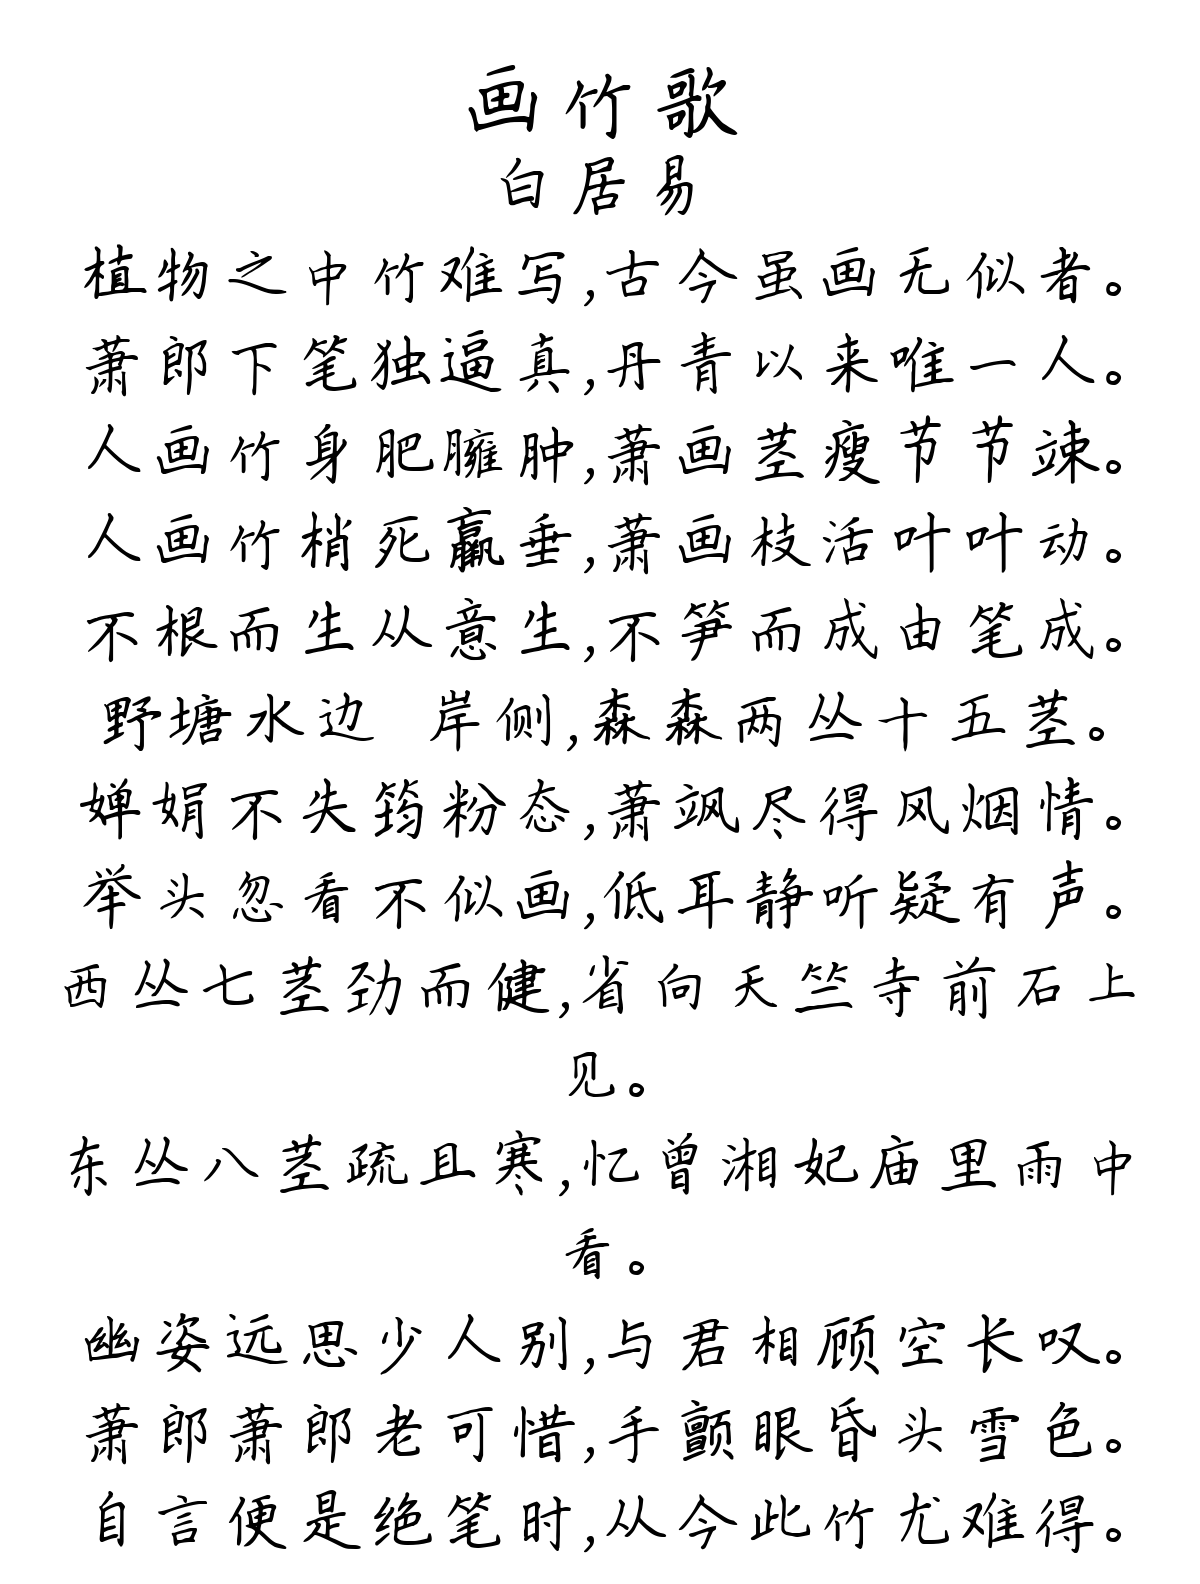 画竹歌
白居易
植物之中竹难写,古今虽画无似者。
萧郎下笔独逼真,丹青以来唯一人。
人画竹身肥臃肿,萧画茎瘦节节竦。
人画竹梢死羸垂,萧画枝活叶叶动。
不根而生从意生,不笋而成由笔成。
野塘水边 岸侧,森森两丛十五茎。
婵娟不失筠粉态,萧飒尽得风烟情。
举头忽看不似画,低耳静听疑有声。
西丛七茎劲而健,省向天竺寺前石上
见。
东丛八茎疏且寒,忆曾湘妃庙里雨中
看。
幽姿远思少人别,与君相顾空长叹。
萧郎萧郎老可惜,手颤眼昏头雪色。
自言便是绝笔时,从今此竹尤难得。